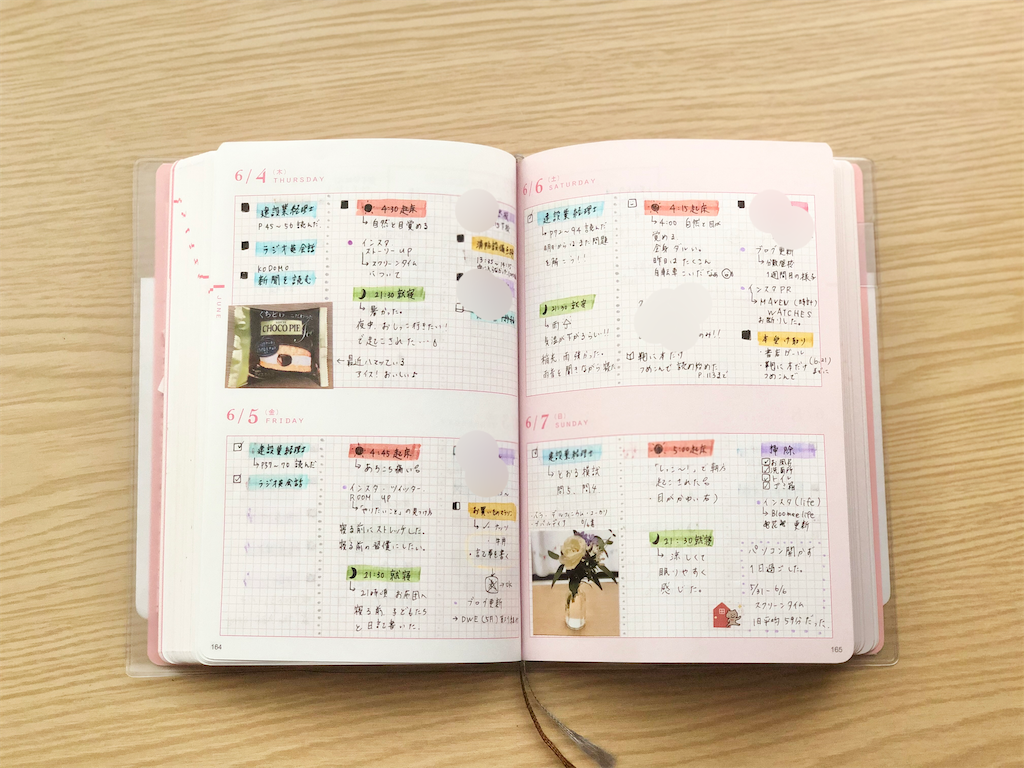 6/4 (木)
THURSDAY
建設業経理士
P.45~50 読んだ
ラジオ英会話
KODOMO
新聞を読む
4:30 起床
↳自然と目覚める
インスタ
ストーリーUP
↳スクリーンタイム
について
21:30 就寝
↳暑かった。
夜中、おしっこ行きたい!
で起こされた
CHOCO PIE
←最近ハマっている
アイス!おいしい♪
JUNE
6/5 (金)
FRIDAY
建設業経理士
↳P57~70 読んだ
ラジオ英会話
4:45 起床
↳あちこち痛い
インスタ・ツイッター
ROOM UP
↳「やりたいこと」の見つけ方
寝る前にストレッチした。
寝る前の習慣にしたい。
21:30 就寝
↳21時頃 お茶向へ
寝る前、子どもたち
と日記書いた。
お買いもの
・ノーカップ
・牛丼
ブログ更新
→DWE(5月)
164
6/6 (土)
SATURDAY
建設業経理士
↳P72~94 読んだ
明日からはまた問題
を解こう!!
21:30 就寝
↳雨今
結構 雨強かった。
雨音を聞きながら寝た
4:15 起床
↳4:00 自然と目が
覚める
全身ダルい。
昨日はたくさん
自転車こいだなぁ
のみ!!
鞄に本だけ
つめこんで 読み始めた
P.113まで
・ブログ更新
↳分散登校
1週間目の様子
・インスタPR
↳MAVEN (時計)
WATCHES
お断りした。
本受け取り
・鞄に本だけ
つめこんで
(6/21)
までに
6/7 (日)
SUNDAY
建設業経理士
↳とおる模試
問5、問4
5:00 起床
「しっこ~!」で朝方
起こされた
・目がかゆい(右)
21:30 就寝
↳涼しくて
眠りやすく
感じた。
掃除
お風呂
洗面所
トイレ
ゴミ箱
・インスタ(life)
↳Bloomee life
更新
・パソコン開かず
1日過ごした。
・5/31~6/6
スクリーンタイム
1日平均 59分だった。
165